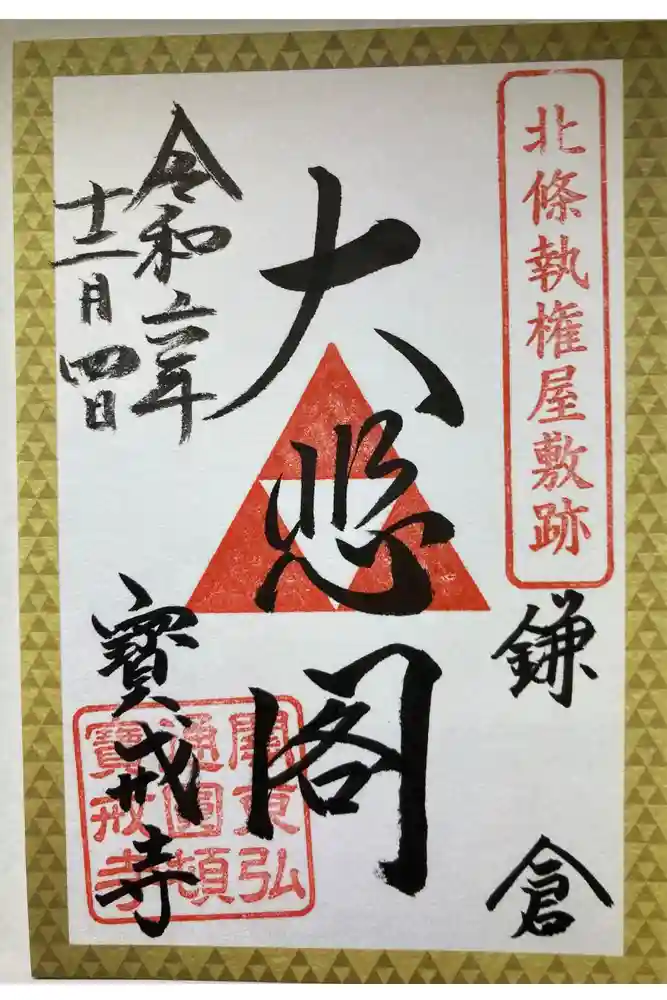 北條執権屋敷跡
鎌倉
大悲閣
令和六年
十二月四日
寶戒寺
関東弘
通圓頓
寶戒寺